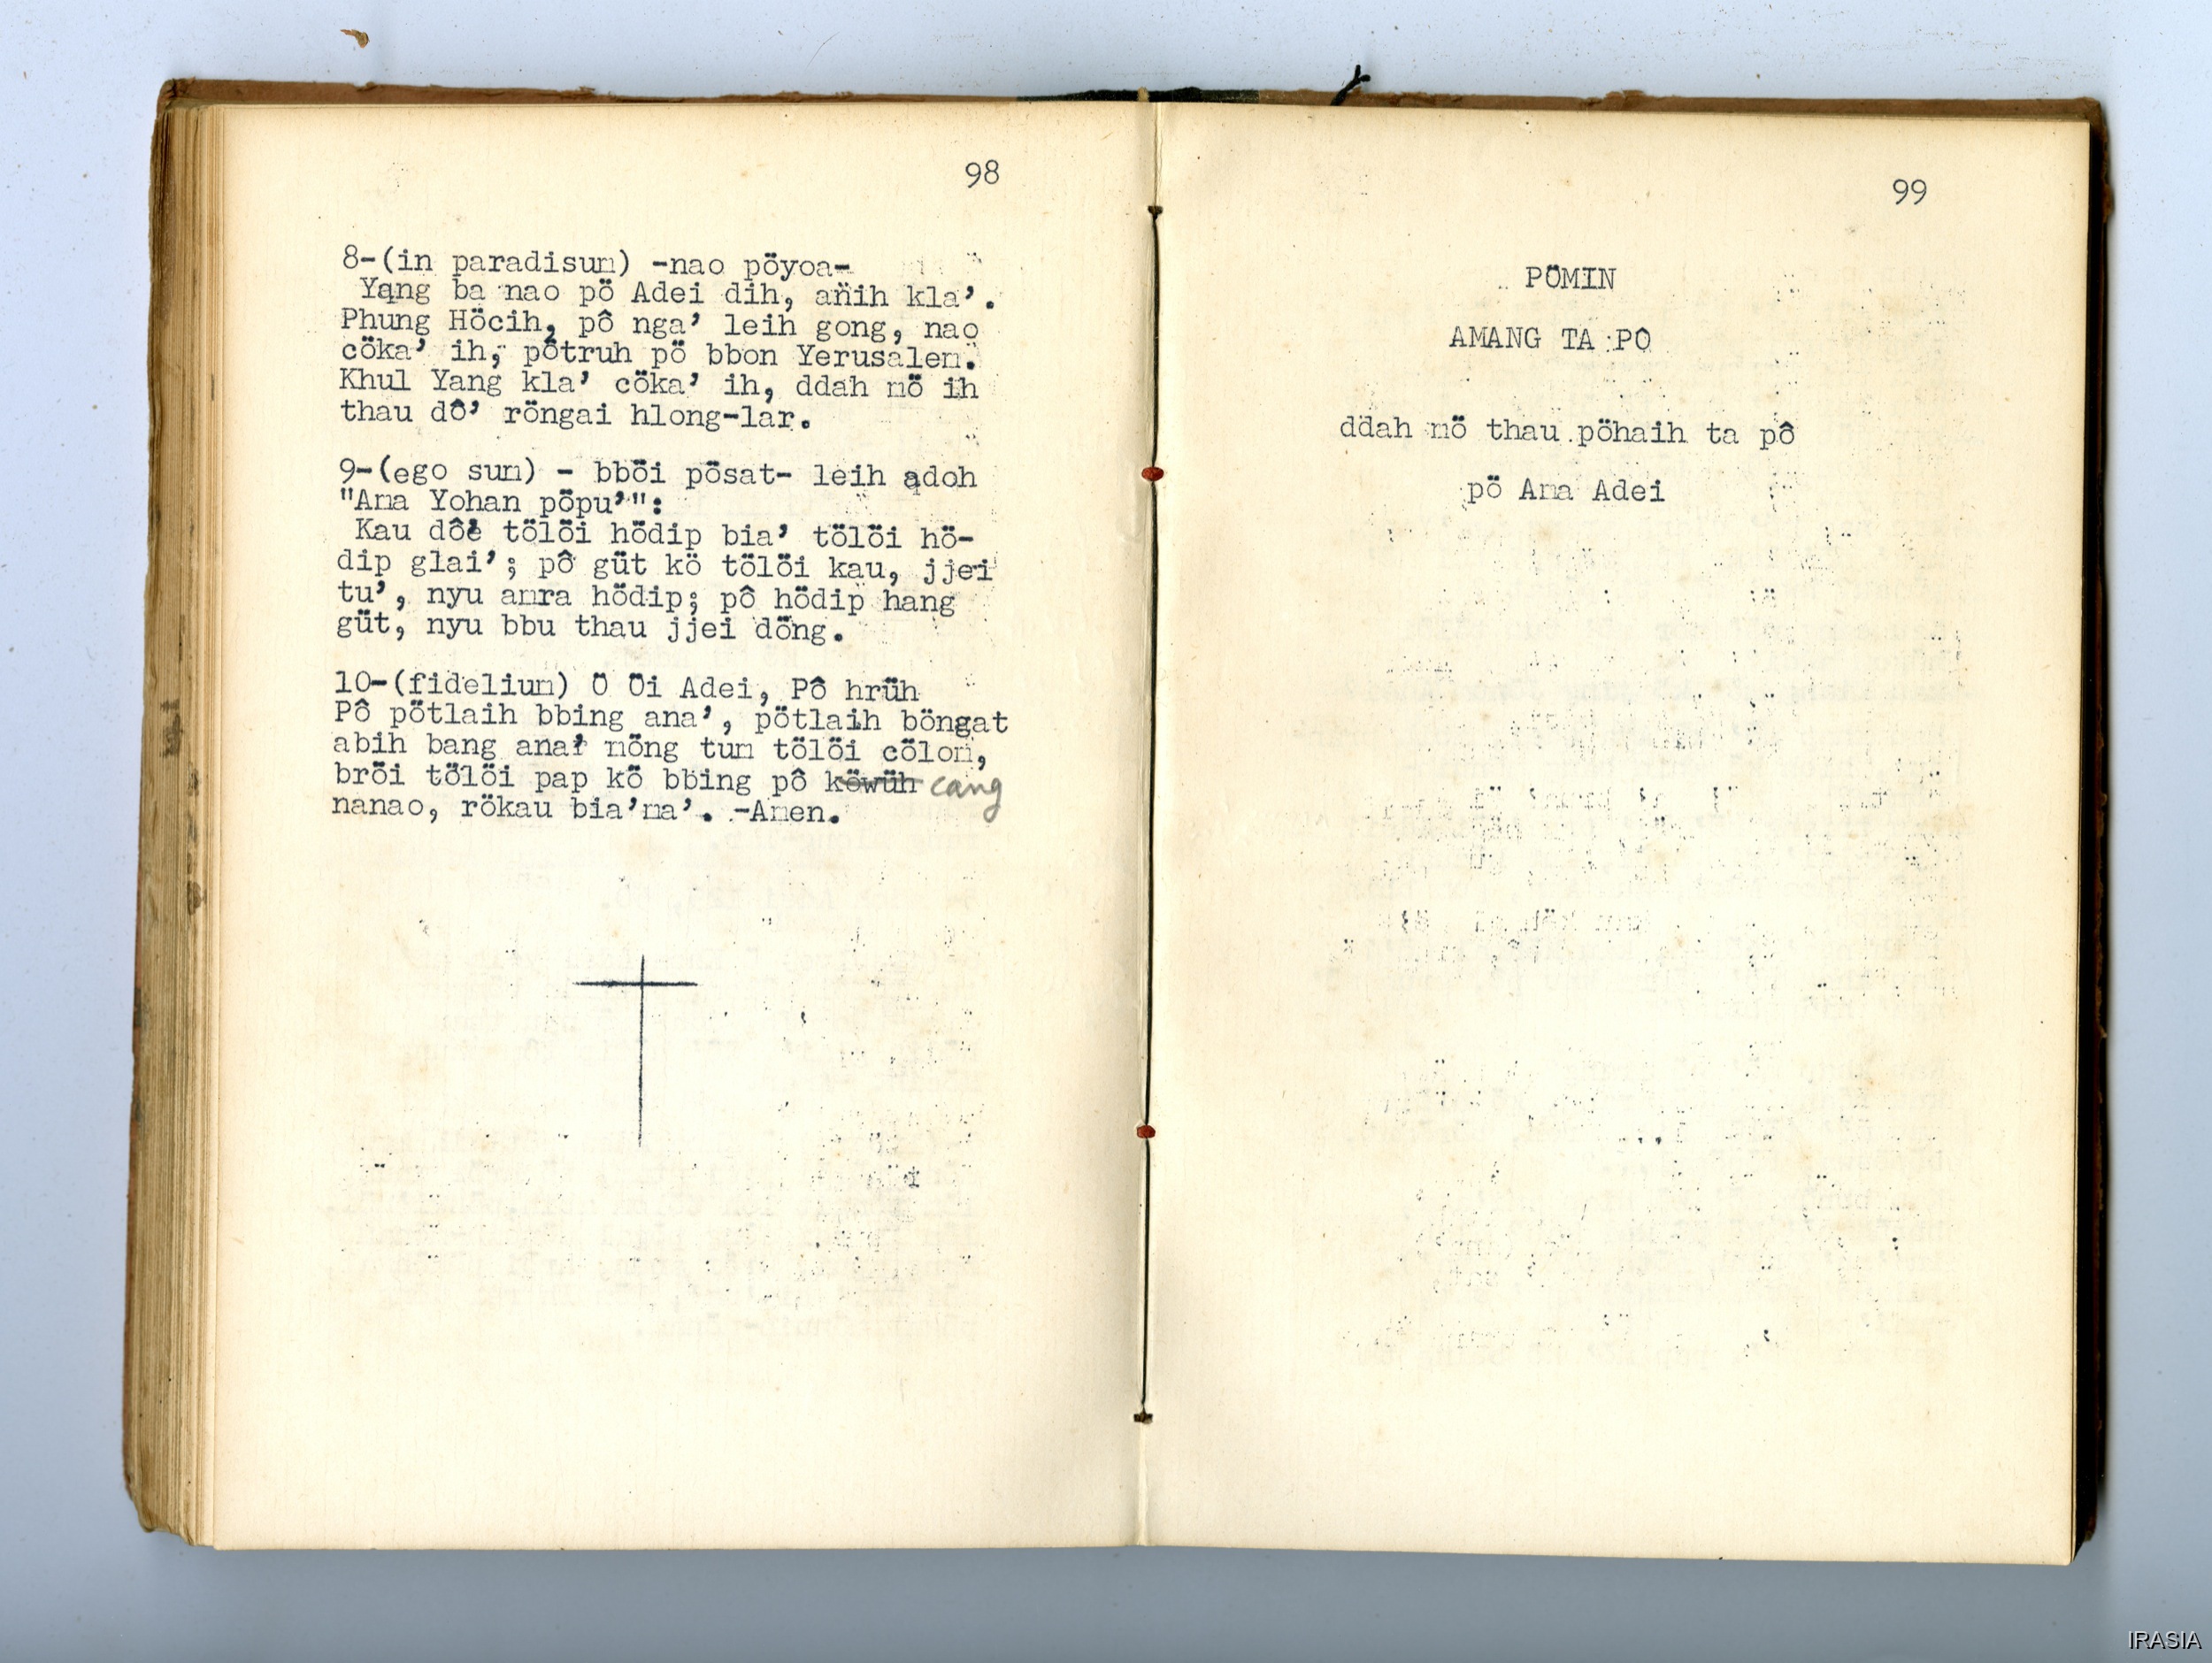 98
8-(in paradisum) -nao pöyoa-
Yang ba nao pö Adei dih, añih kla’.
Phung Höcih, pô nga’ leih gong, nao
cöka’ ih, pötruh pö bbon Yerusalem.
Khul Yang kla’ cöka’ ih, ddah mö ih
thau dô’ röngai hlong-lar.
9-(ego sum) - bböi pösat- leih adoh
"Ama Yohan pöpu’":
Kau dô’ tölöi hödip bia’ tölöi hö-
dip glai’; pô güt kö tölöi kau, jjei
tu’, nyu amra hödip; pô hödip hang
güt, nyu bbu thau jjei döng.
10-(fidelium) Ö Öi Adei, Pô hrüh
Pô pötlaih bbing ana’, pötlaih böngat
abih bang ana’ möng tum tölöi cölom,
bröi tölöi pap kö bbing pô köwüh cang
nanao, rökau bia’ma’. -Amen.
99
PÖMIN
AMANG TA PO
ddah mö thau pöhaih ta pô
pö Ama Adei
IRASIA